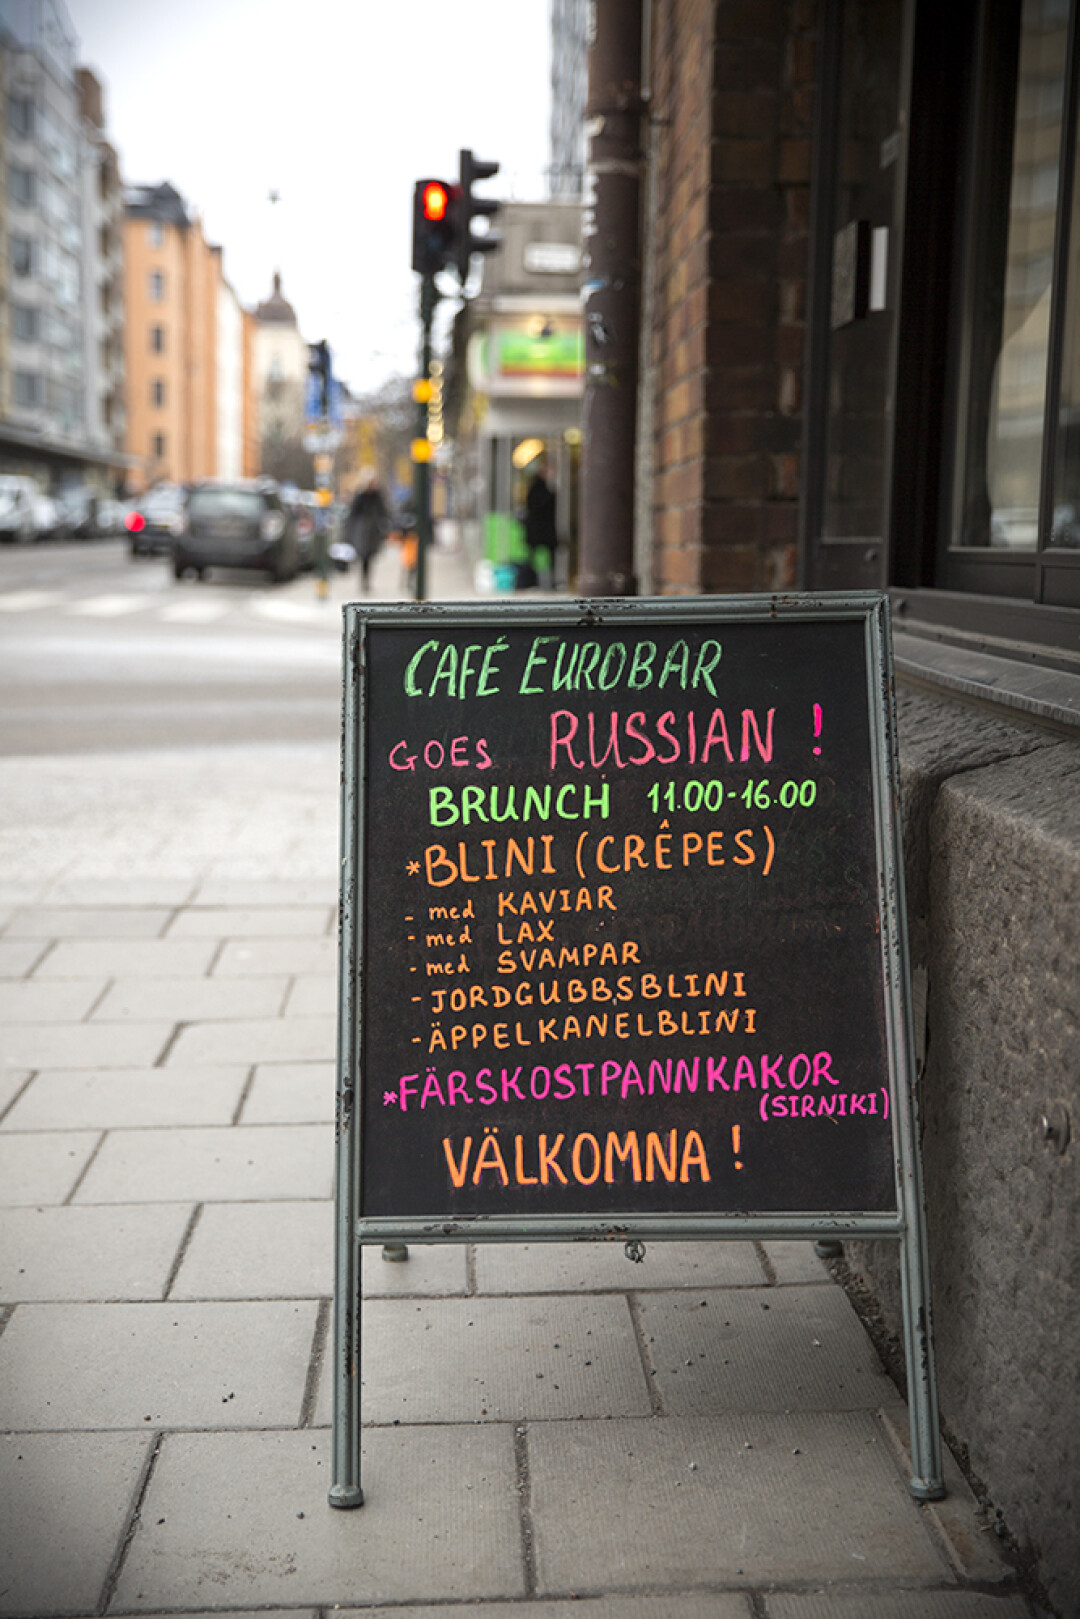 CAFÉ EUROBAR
GOES RUSSIAN !
BRUNCH 11.00-16.00
*BLINI (CRÊPES)
- med KAVIAR
- med LAX
- med SVAMPAR
- JORDGUBBSBLINI
- ÄPPELKANELBLINI
*FÄRSKOSTPANNKAKOR
(SIRNIKI)
VÄLKOMNA !